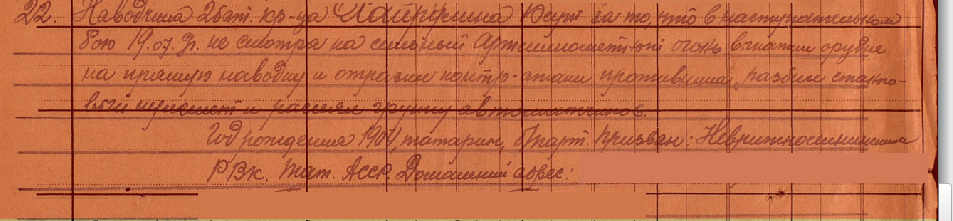 22. Наводчика 2 бат. кр-ца Юсуп за то, что в наступательном
бою 19.07. не смотря на сильный Арт.минометный огонь выкатил орудие
на прямую наводку и отразил контр-атаки противника, разбил станко-
вый пулемет и рассеял группу автоматчиков.
Год рождения 1904, татарин, б/парт. Призван:
РВК. Тат. АССР. Домашний адрес: